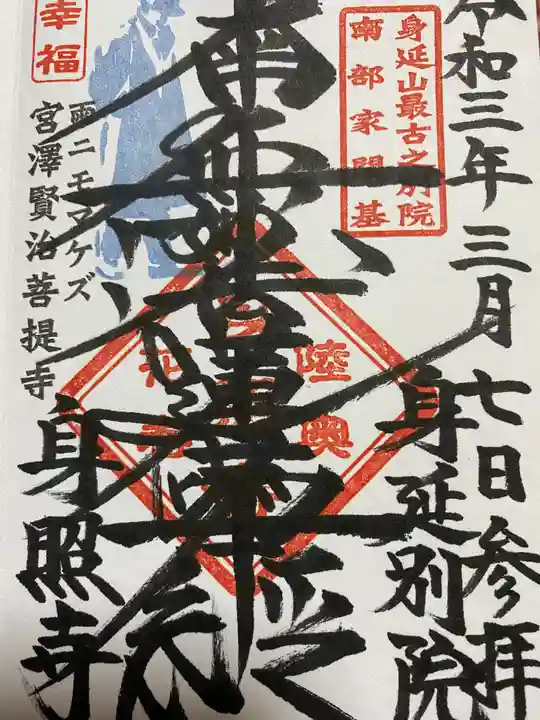 令和三年三月七日参拝
身延別院
身延山最古之別院
南部家開基
南無妙法蓮華経
陸奥
幸福
雨ニモマケズ
宮澤賢治菩提寺
身照寺